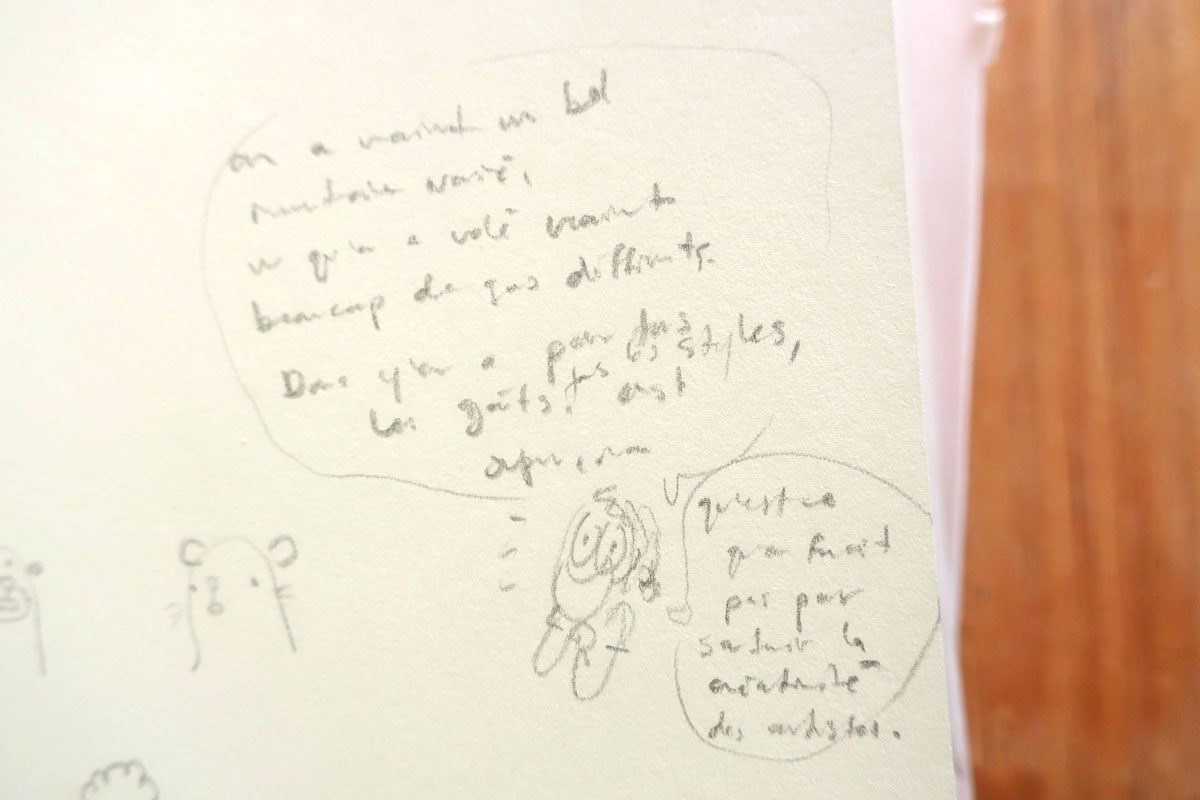 on a vraiment un bel
varié,
vu qu'on a volé vraiment
beaucoup de gens différents.
Donc y'en a pour tous
tous les styles,
les goûts. c'est
qu'est ce
qu'on ferait
pas pour
la
créativité
des artistes.